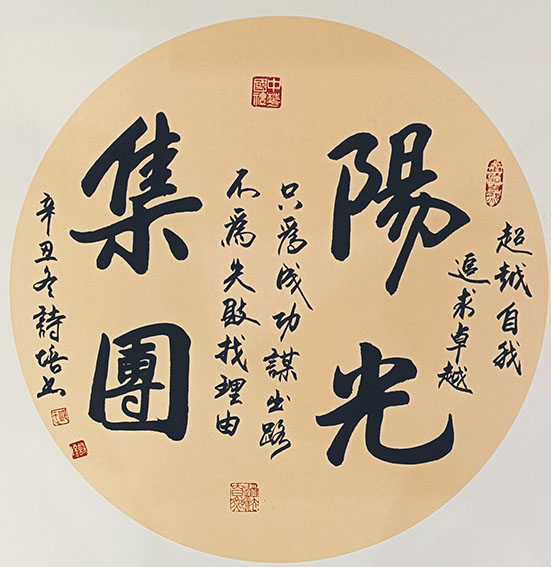 超越自我
追求卓越
陽光
中華國禮
只為成功謀出路
不為失敗找理由
集團
辛丑冬詩培书